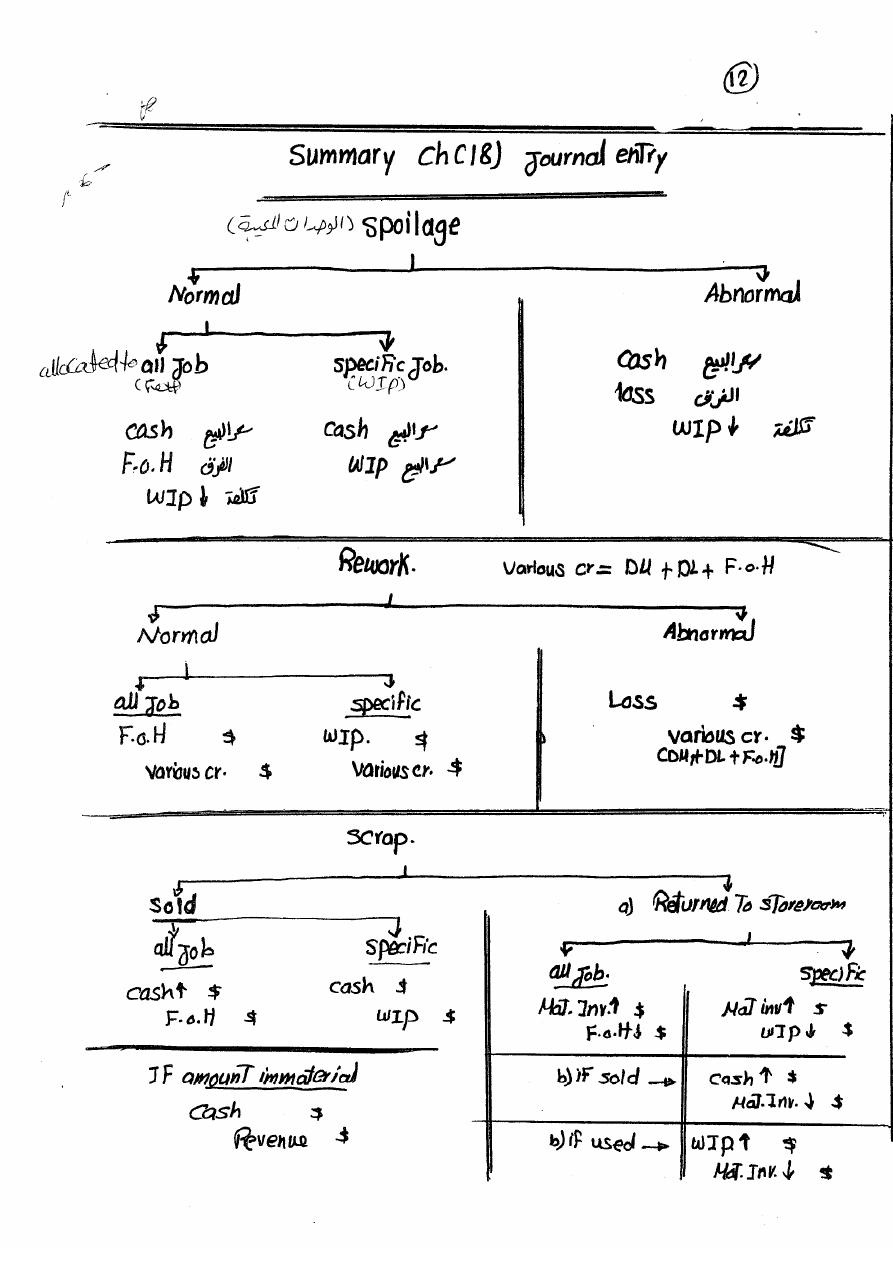 12
Summary Ch(18) Journal entry
(الوحدات المعيبة) Spoilage
Normal Abnormal
allocated to all Job specific Job.
(WIP)
cash سعر البيع cash سعر البيع cash سعر البيع
F.o.H الفرق WIP سعر البيع loss الفرق
WIP ↓ تكلفة WIP ↓ تكلفة
Rework. Various cr = DM + DL + F.o.H
Normal Abnormal
all Job specific Loss $
F.o.H $ WIP. $ various cr. $
various cr. $ various cr. $ (DM + DL + F.o.H]
Scrap.
Sold a) Returned To storeroom
all Job specific all Job. specific
cash↑ $ cash $ Mat. Inv.↑ $ Mat inv↑ $
F.o.H $ WIP $ F.o.H↓ $ WIP↓ $
IF amount immaterial b) if sold → cash ↑ $
cash $ Mat. Inv. ↓ $
Revenue $ b) if used → WIP↑ $
Mat. Inv. ↓ $